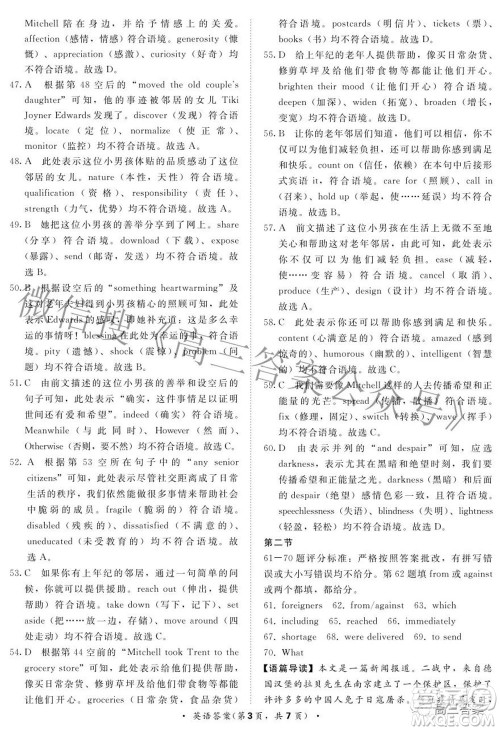 Mitchell 陪在身边，并给予情感上的关怀。
affection（感情）符合语境。generosity（慷
慨）、appreciation（感激）、curiosity（好奇）均
不符合语境。故选 D。
47. A 根据第 48 空后的“moved the old couple's
daughter”可知，他的事迹被邻居的女儿 Tiki
Joyner Edwards 发现了。discover（发现）符合
语境。locate（定位）、normalize（使正常）、
monitor（监控）均不符合语境。故选 A。
48. A 此处表示这位小男孩体贴的品质感动了这位
邻居的女儿。nature（本性，天性）符合语境。
qualification（资格）、responsibility（责任）、
strength（力气，优势）均不符合语境。故选 A。
49. B 此处表示这位小男孩的善举分享到了网上。share
（分享）符合语境。download（下载）、expose
（暴露）、send（邮寄，发送）均不符合语境。
故选 B。
50. B 根据空后的“something heartwarming”及
这对老年夫妇得到了小男孩精心的照顾可知，此
处表示 Edwards 的感受，即她补充道：这是多么
幸运的事情啊！blessing（幸事）符合语境。
pity（遗憾）、shock（震惊）、problem（问
题）均不符合语境。故选 B。
51. C 由前文描述了这位小男孩的善举和设空后的
句子可知，此处表示“确实，这些简单的事可以证
明世界仍然有爱和希望”。indeed（确实）符合语境。
Meanwhile（与此同时）、However（然而）、
Otherwise（否则，要不然）均不符合语境。故选 C。
52. A 根据第 53 空所在句子中的“any senior
citizens”可知，此处表示尽管社交距离成了日常
生活的秩序，我们仍然可以找到方法来照顾社会
中脆弱的成员。fragile（脆弱的）符合语境。
disabled（残疾的）、dissatisfied（不满意的）、
uneducated（未受教育的）均不符合语境。故选 A。
53. C 如果你认识上年纪的邻居，通过一句简单的
问候就可以帮助到他们。reach out（伸出，伸手）
符合语境。take down（写下，拆卸）、set
aside（把……放一边，存储）、turn down（拒
绝，减弱）均不符合语境。故选 C。
54. D 根据第 44 空前的“Mitchell took Trent to the
grocery store”可知，此处表示给他们带来日常
杂货。groceries（食品杂货，日常杂货）符合语
境。postcards（明信片）、tickets（票）、
boxes（盒子）均不符合语境。故选 D。
55. D 给上年纪的老年人提供帮助，像买日常杂货、
修剪草坪以及给他们带食物等都可以让他们开心。
brighten their mood（让他们开心）符合语境。
slow（减速）、widen（拓宽）、broaden（变宽，
增长）均不符合语境。故选 D。
56. B 让你的年老邻居们知道，他们可以信任你，你
可以为他们减轻负担，这可以让他们心里感到轻
松。count on（信任，依赖）符合语境，后接形式
宾语 it。carry（携带）、call for（召来）、hold
（握住）均不符合语境。故选 B。
57. A 前文描述了这位小男孩对年老的邻居的善意
关心和照顾，这可以为他们减轻负担。ease（减轻，
使……变容易）符合语境。cause（引起）、
produce（产生）、end（结束）均不符合语境。故选 A。
58. C 此处表示照顾别人可以让你很有成就感。
content（心满意足的）符合语境。amused
（愉悦的）、humorous（幽默的）、intelligent（智慧
的）均不符合语境。故选 C。
59. C 我们需要像 Mitchell 这样的人去传播关爱、
正能量和希望。spread（传播，散播）符合语境。
fix（修理，固定）、switch（转换）、wave（挥手）
均不符合语境。故选 C。
60. D 由表示并列的“and despair”可知，应选
darkness，表示在黑暗和绝望时刻，我们要拥有
希望和正能量。darkness（黑暗）和后面的 and
despair（绝望）感情色彩一致，符合语境。
speechlessness（无话可说）、distance（距
离）、defeat（失败）均不符合语境。故选 D。
第二节
61—70 题评分标准：严格按照答案批改，有拼写错误、
大小写错误均不给分。第 62 题填 from
不给分。
61. foreigners 62. among 63. which
64. attacked 65. included 66. immediately
67. shortage 68. were delivered 69. to send
70. What
【语篇导读】本文是一篇新闻报道。二战中，来自德
国汉堡的拉贝先生在南京建立了一个保护区，保护了
许许多多的中国人免受日本侵略者的杀害。为了
英语答案（第 3 页，共 7 页）
微信搜《高三答案公众号》
高三答案